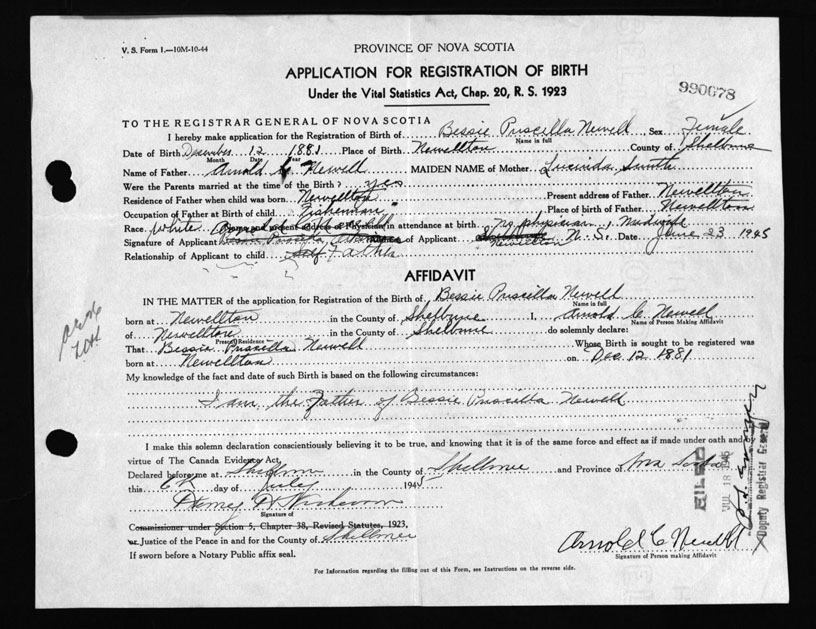 V. S. Form 1.—10M-10-44
PROVINCE OF NOVA SCOTIA
APPLICATION FOR REGISTRATION OF BIRTH
990678
Under the Vital Statistics Act, Chap. 20, R. S. 1923
TO THE REGISTRAR GENERAL OF NOVA SCOTIA
I hereby make application for the Registration of Birth of Bessie Priscilla Newell, Sex Female
Name in full
Date of Birth December 12 1881 Place of Birth Newellton County of Shelburne
Month Date Year
Name of Father Arnold C Newell MAIDEN NAME of Mother Lucinda Smith
Were the Parents married at the time of the Birth? yes
Residence of Father when child was born Newellton Present address of Father Newellton
Occupation of Father at Birth of child Fisherman Place of birth of Father Newellton
Race White Name and present address of Physician in attendance at birth no physician, Midwife
Signature of Applicant Arnold C Newell of Applicant Newellton N. S. Date June 23 1945
Relationship of Applicant to child Self Father
AFFIDAVIT
IN THE MATTER of the application for Registration of the Birth of Bessie Priscilla Newell
Name in full
born at Newellton in the County of Shelburne I, Arnold C. Newell
Name of Person Making Affidavit
of Newellton in the County of Shelburne do solemnly declare:
Present Residence
That Bessie Priscilla Newell Whose Birth is sought to be registered was
born at Newellton on Dec. 12 1881
My knowledge of the fact and date of such Birth is based on the following circumstances:
I am the Father of Bessie Priscilla Newell
I make this solemn declaration conscientiously believing it to be true, and knowing that it is of the same force and effect as if made under oath and by
virtue of The Canada Evidence Act.
Declared before me at Shelburne in the County of Shelburne and Province of Nova Scotia
this 6th day of July 1945
Signature of
Commissioner under Section 5, Chapter 38, Revised Statutes, 1923,
or Justice of the Peace in and for the County of Shelburne
If sworn before a Notary Public affix seal.
Arnold C Newell
Signature of Person making Affidavit
For Information regarding the filling out of this Form, see Instructions on the reverse side.
FILED
JUL 18 1945
Deputy Registrar General